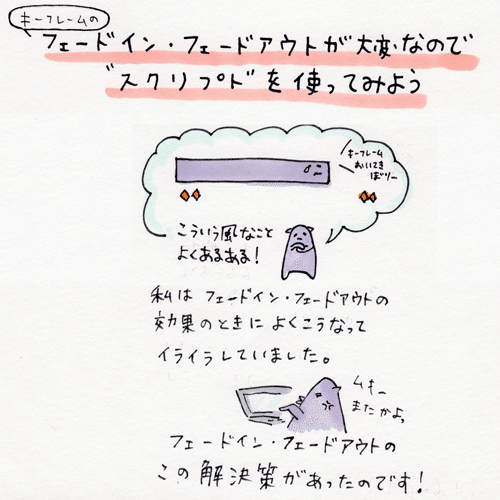 キーフレームの
フェードイン・フェードアウトが大変なので
"スクリプト"を使ってみよう
キーフレーム
おいてき
ぼりー
こういう風なこと
よくあるある!
私はフェードイン・フェードアウトの
効果のときによくこうなって
イライラしていました。
ムキー
またかよっ
フェードイン・フェードアウトの
この解決策があったのです!